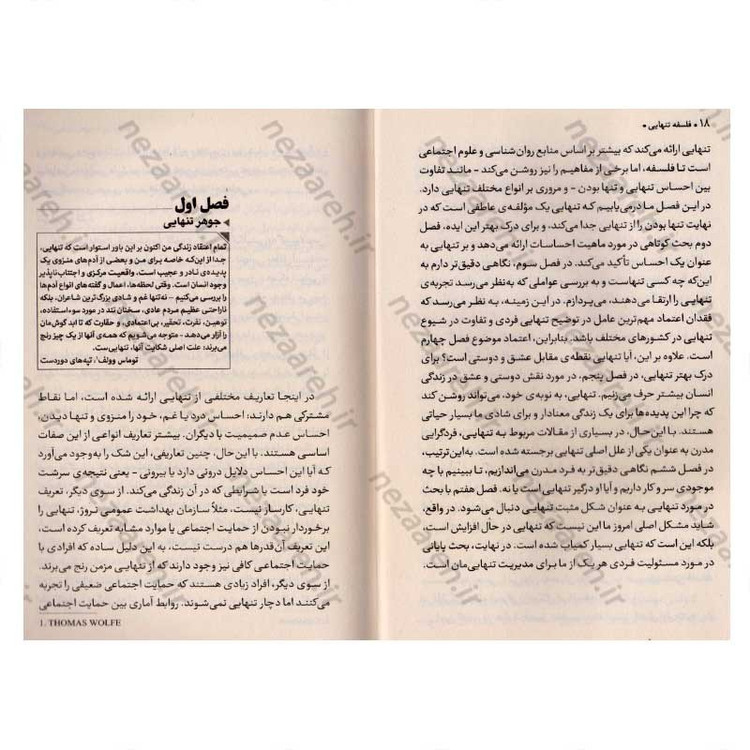 ۱۸ • فلسفه تنهایی •
تنهایی ارائه می‌کند که بیشتر بر اساس منابع روان‌شناسی و علوم اجتماعی
است تا فلسفه، اما برخی از مفاهیم را نیز روشن می‌کند - مانند تفاوت
بین احساس تنهایی و تنها بودن - و مروری بر انواع مختلف تنهایی دارد.
در این فصل ما درمی‌یابیم که تنهایی یک مؤلفه‌ی عاطفی است که در
نهایت تنها بودن را از تنهایی جدا می‌کند، و برای درک بهتر این ایده، فصل
دوم بحث کوتاهی در مورد ماهیت احساسات ارائه می‌دهد و بر تنهایی به
عنوان یک احساس تأکید می‌کند. در فصل سوم، نگاهی دقیق‌تر دارم به
این‌که چه کسی تنهاست و به بررسی عواملی که به‌نظر می‌رسد تجربه‌ی
تنهایی را ارتقا می‌دهند، می‌پردازم. در این زمینه، به نظر می‌رسد که
فقدان اعتماد مهم‌ترین عامل در توضیح تنهایی فردی و تفاوت در شیوع
تنهایی در کشورهای مختلف باشد. بنابراین، اعتماد موضوع فصل چهارم
است. علاوه بر این، آیا تنهایی نقطه‌ی مقابل عشق و دوستی است؟ برای
درک بهتر تنهایی، در فصل پنجم، در مورد نقش دوستی و عشق در زندگی
انسان بیشتر حرف می‌زنیم. تنهایی، به نوبه‌ی خود، می‌تواند روشن کند
که چرا این پدیده‌ها برای یک زندگی معنادار و برای شادی ما بسیار حیاتی
هستند. با این‌حال، در بسیاری از مقالات مربوط به تنهایی، فردگرایی
مدرن به عنوان یکی از علل اصلی تنهایی برجسته شده است. به این‌ترتیب،
در فصل ششم نگاهی دقیق‌تر به فرد مدرن می‌اندازیم، تا ببینیم با چه
موجودی سر و کار داریم و آیا او درگیر تنهایی است یا نه. فصل هفتم با بحث
در مورد تنهایی به عنوان شکل مثبت تنهایی دنبال می‌شود. در واقع،
شاید مشکل اصلی امروز ما این نیست که تنهایی در حال افزایش است،
بلکه این است که تنهایی بسیار کمیاب شده است. در نهایت، بحث پایانی
در مورد مسئولیت فردی هر یک از ما برای مدیریت تنهایی‌مان است.
فصل اول
جوهر تنهایی
تمام اعتقاد زندگی من اکنون بر این باور استوار است که تنهایی،
جدا از این‌که خاصه برای من و بعضی از آدم‌های منزوی یک
پدیده‌ی نادر و عجیب است، واقعیت مرکزی و اجتناب‌ناپذیر
وجود انسان است. وقتی لحظه‌ها، اعمال و گفته‌های انواع آدم‌ها
را بررسی می‌کنیم – نه‌تنها غم و شادی بزرگ‌ترین شاعران، بلکه
ناراحتی عظیم مردم عادی، سخنان تند در مورد سوءاستفاده،
توهین، نفرت، تحقیر، بی‌اعتمادی، و حقارت که تا ابد گوش‌مان
را آزار می‌دهند - متوجه می‌شویم که همه‌ی آن‌ها از یک چیز رنج
می‌برند: علت اصلی شکایت آنها، تنهایی‌ست.
توماس وولف¹، تپه‌های دوردست
در اینجا تعاریف مختلفی از تنهایی ارائه شده است، اما نقاط
مشترکی هم دارند: احساس درد یا غم، خود را منزوی و تنها دیدن،
احساس عدم صمیمیت با دیگران. بیشتر تعاریف انواعی از این صفات
اساسی هستند. با این حال، چنین تعاریفی، این شک را به‌وجود می‌آورد
که آیا این احساس دلایل درونی دارد یا بیرونی - یعنی نتیجه‌ی سرشت
خود فرد است یا شرایطی که در آن زندگی می‌کند. از سوی دیگر، تعریف
تنهایی، کارساز نیست. مثلاً سازمان بهداشت عمومی نروژ، تنهایی را
برخوردار نبودن از حمایت اجتماعی یا موارد مشابه تعریف کرده است،
این تعریف آن‌قدرها هم درست نیست، به این دلیل ساده که افرادی با
حمایت اجتماعی کافی نیز وجود دارند که از تنهایی مزمن رنج می‌برند.
از سوی دیگر، افراد زیادی هستند که حمایت اجتماعی ضعیفی را تجربه
می‌کنند اما دچار تنهایی نمی‌شوند. روابط آماری بین حمایت اجتماعی
1. THOMAS WOLFE
nezaareh.ir
نظاره